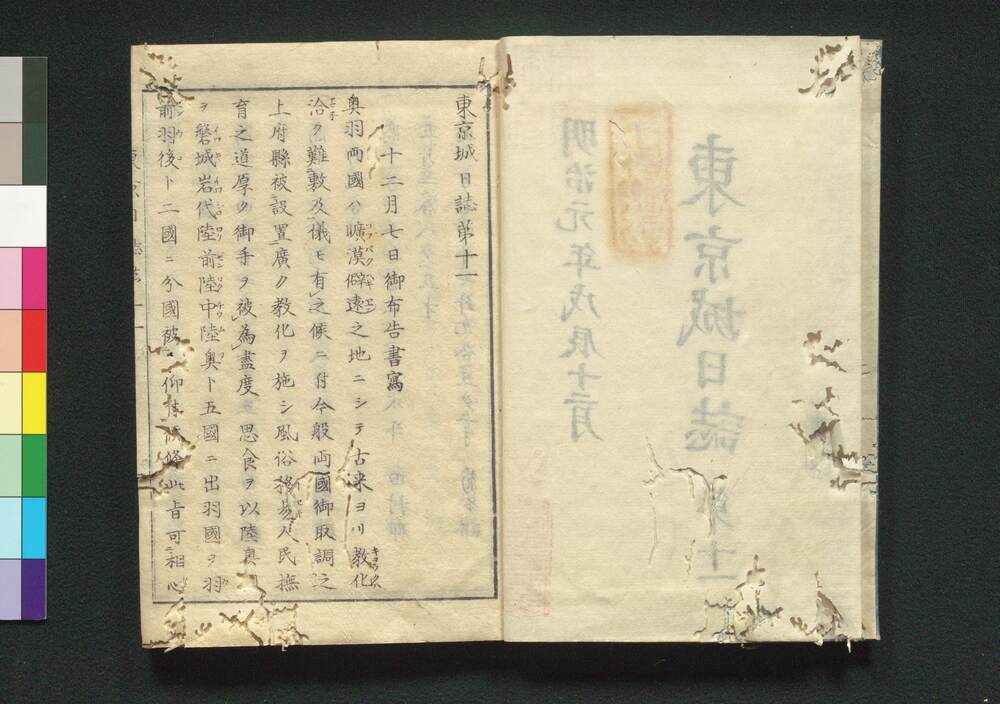 東京城日誌 第十一
明治元年戊辰十二月
東京城日誌第十一
十二月七日御布告書寫
奥羽両國ハ曠漠僻遠之地ニシテ古来ヨリ教化
洽ク難敷及儀モ有之候ニ付今般両國御取調之
上府縣被設置廣ク教化ヲ施シ風俗移易人民撫
育之道厚ク御手ヲ被為盡度思食ヲ以陸奥
ヲ磐城岩代陸前陸中陸奥ト五國ニ出羽國ヲ羽
前羽後ト二國ニ分國被 仰 候條此旨可相心